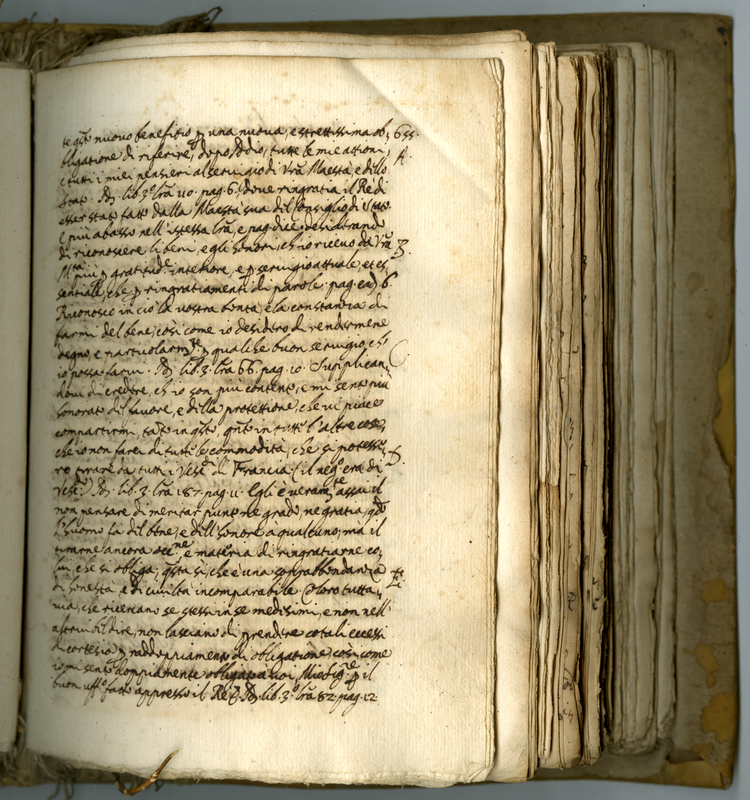 te q.to nuovo benefitio p una nuova, e strettissima ob, 655.
bligatione di riferire, dopo Dio, tutte le mie attioni, A.
e tutti i miei pensieri al servigio di Vra Maestà, e dello
stato. lib. 3.o lra 110. pag. 6. dove ringratia il Re di
esser stato fatto dalla Maestà sua del Consiglio di stato.
E più abasso nell' istessa lra, e pag. dice: desiderando
di riconoscere li beni, e gli honori, ch'io ricevo da Vra B.
M.tà più p gratitud.e interiore, e p servigio attuale, et es,
sentiale, che p ringratiamenti di parole. pag. ead. 6.
Riconosco in ciò la vostra bontà, e la constanza di
farmi del bene, così come io desidero di rendermene
degno, e particolarm.te p qualche buon servigio, ch'
io possa farvi. lib. 3. lra 66. pag. 10. Supplican, C
dovi di credere, ch'io son più contento, e mi sento più
honorato del favore, e della protettione, che vi piace
compartirmi, tato in q.sto, q.nto in tutte l'altre cose,
che io non farei di tutte le commodità, che si potesse,
ro tirare da tutti i Vesc.i di Francia. (il neg.o era di
Vesc.i) lib. 3. lra 187. pag. 11. Egli è veram.te assai il
non pensare di meritar punto ne grado, ne gratia, q.do
l'huomo fà del bene, e dell' honore à qualcuno; ma il
tirarne ancora occ.ne, e materia di ringratiarne co,
lui, che si obliga; q.sta sì, che è una soprabbondanza E
di honestà, e di civiltà incomparabile. Coloro tutta,
via, che ricevano se stessi in se medesimi, e non nell'
altrui bel dire, non lasciano di prendere cotali eccessi
di cortesia p raddoppiamento di obligatione, così come
io mi sento doppiamente obligato à voi, p il
buon uff.o fatto appresso il Re. lib. 3.o lra 82. pag. 12